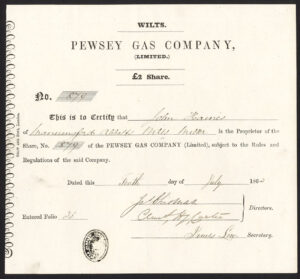 WILTS.
PEWSEY GAS COMPANY,
(LIMITED.)
£2 Share.
No. 879
This is to Certify that John Haines
of Manningford Abbots Wilts is the Proprietor of the
Share, No. 879 of the PEWSEY GAS COMPANY (Limited), subject to the Rules and
Regulations of the said Company.
Dated this day of July 186
Directors.
Entered Folio
James Secretary.